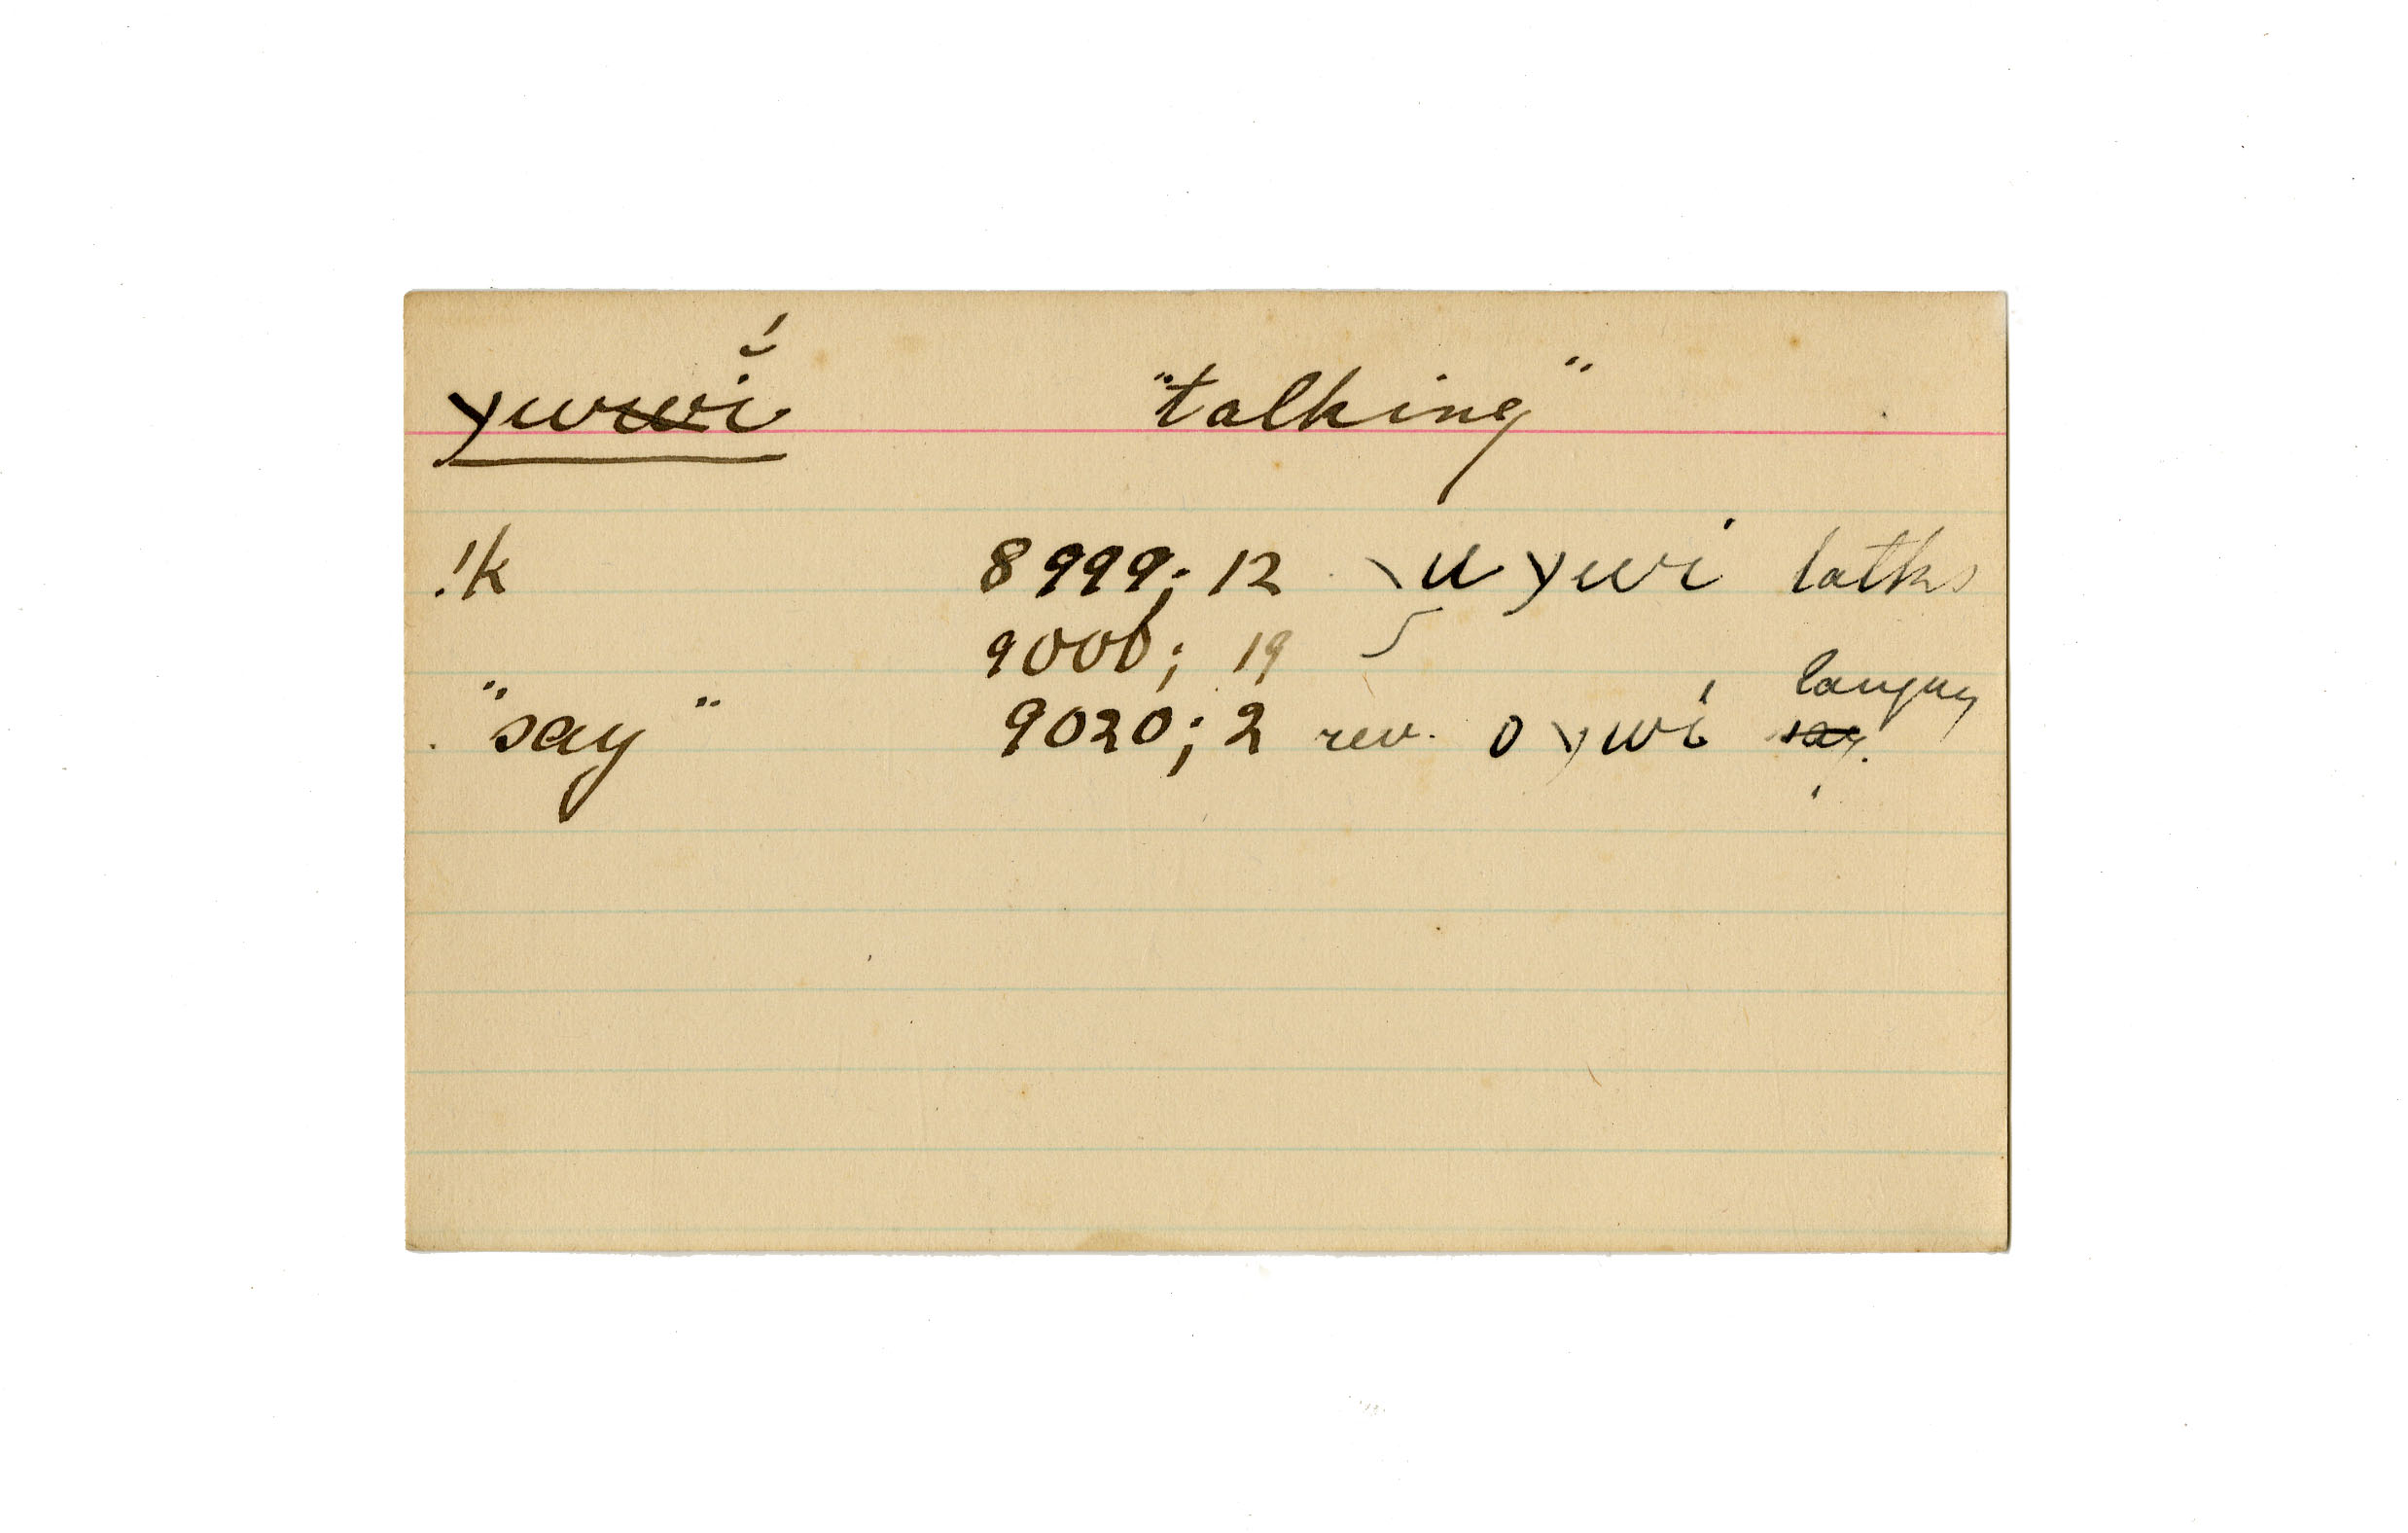 ywí̯ "talking"
!k 8999; 12 \u ywi latks
9006; 19
"say" 9020; 2 rev. o ywí languag
say.